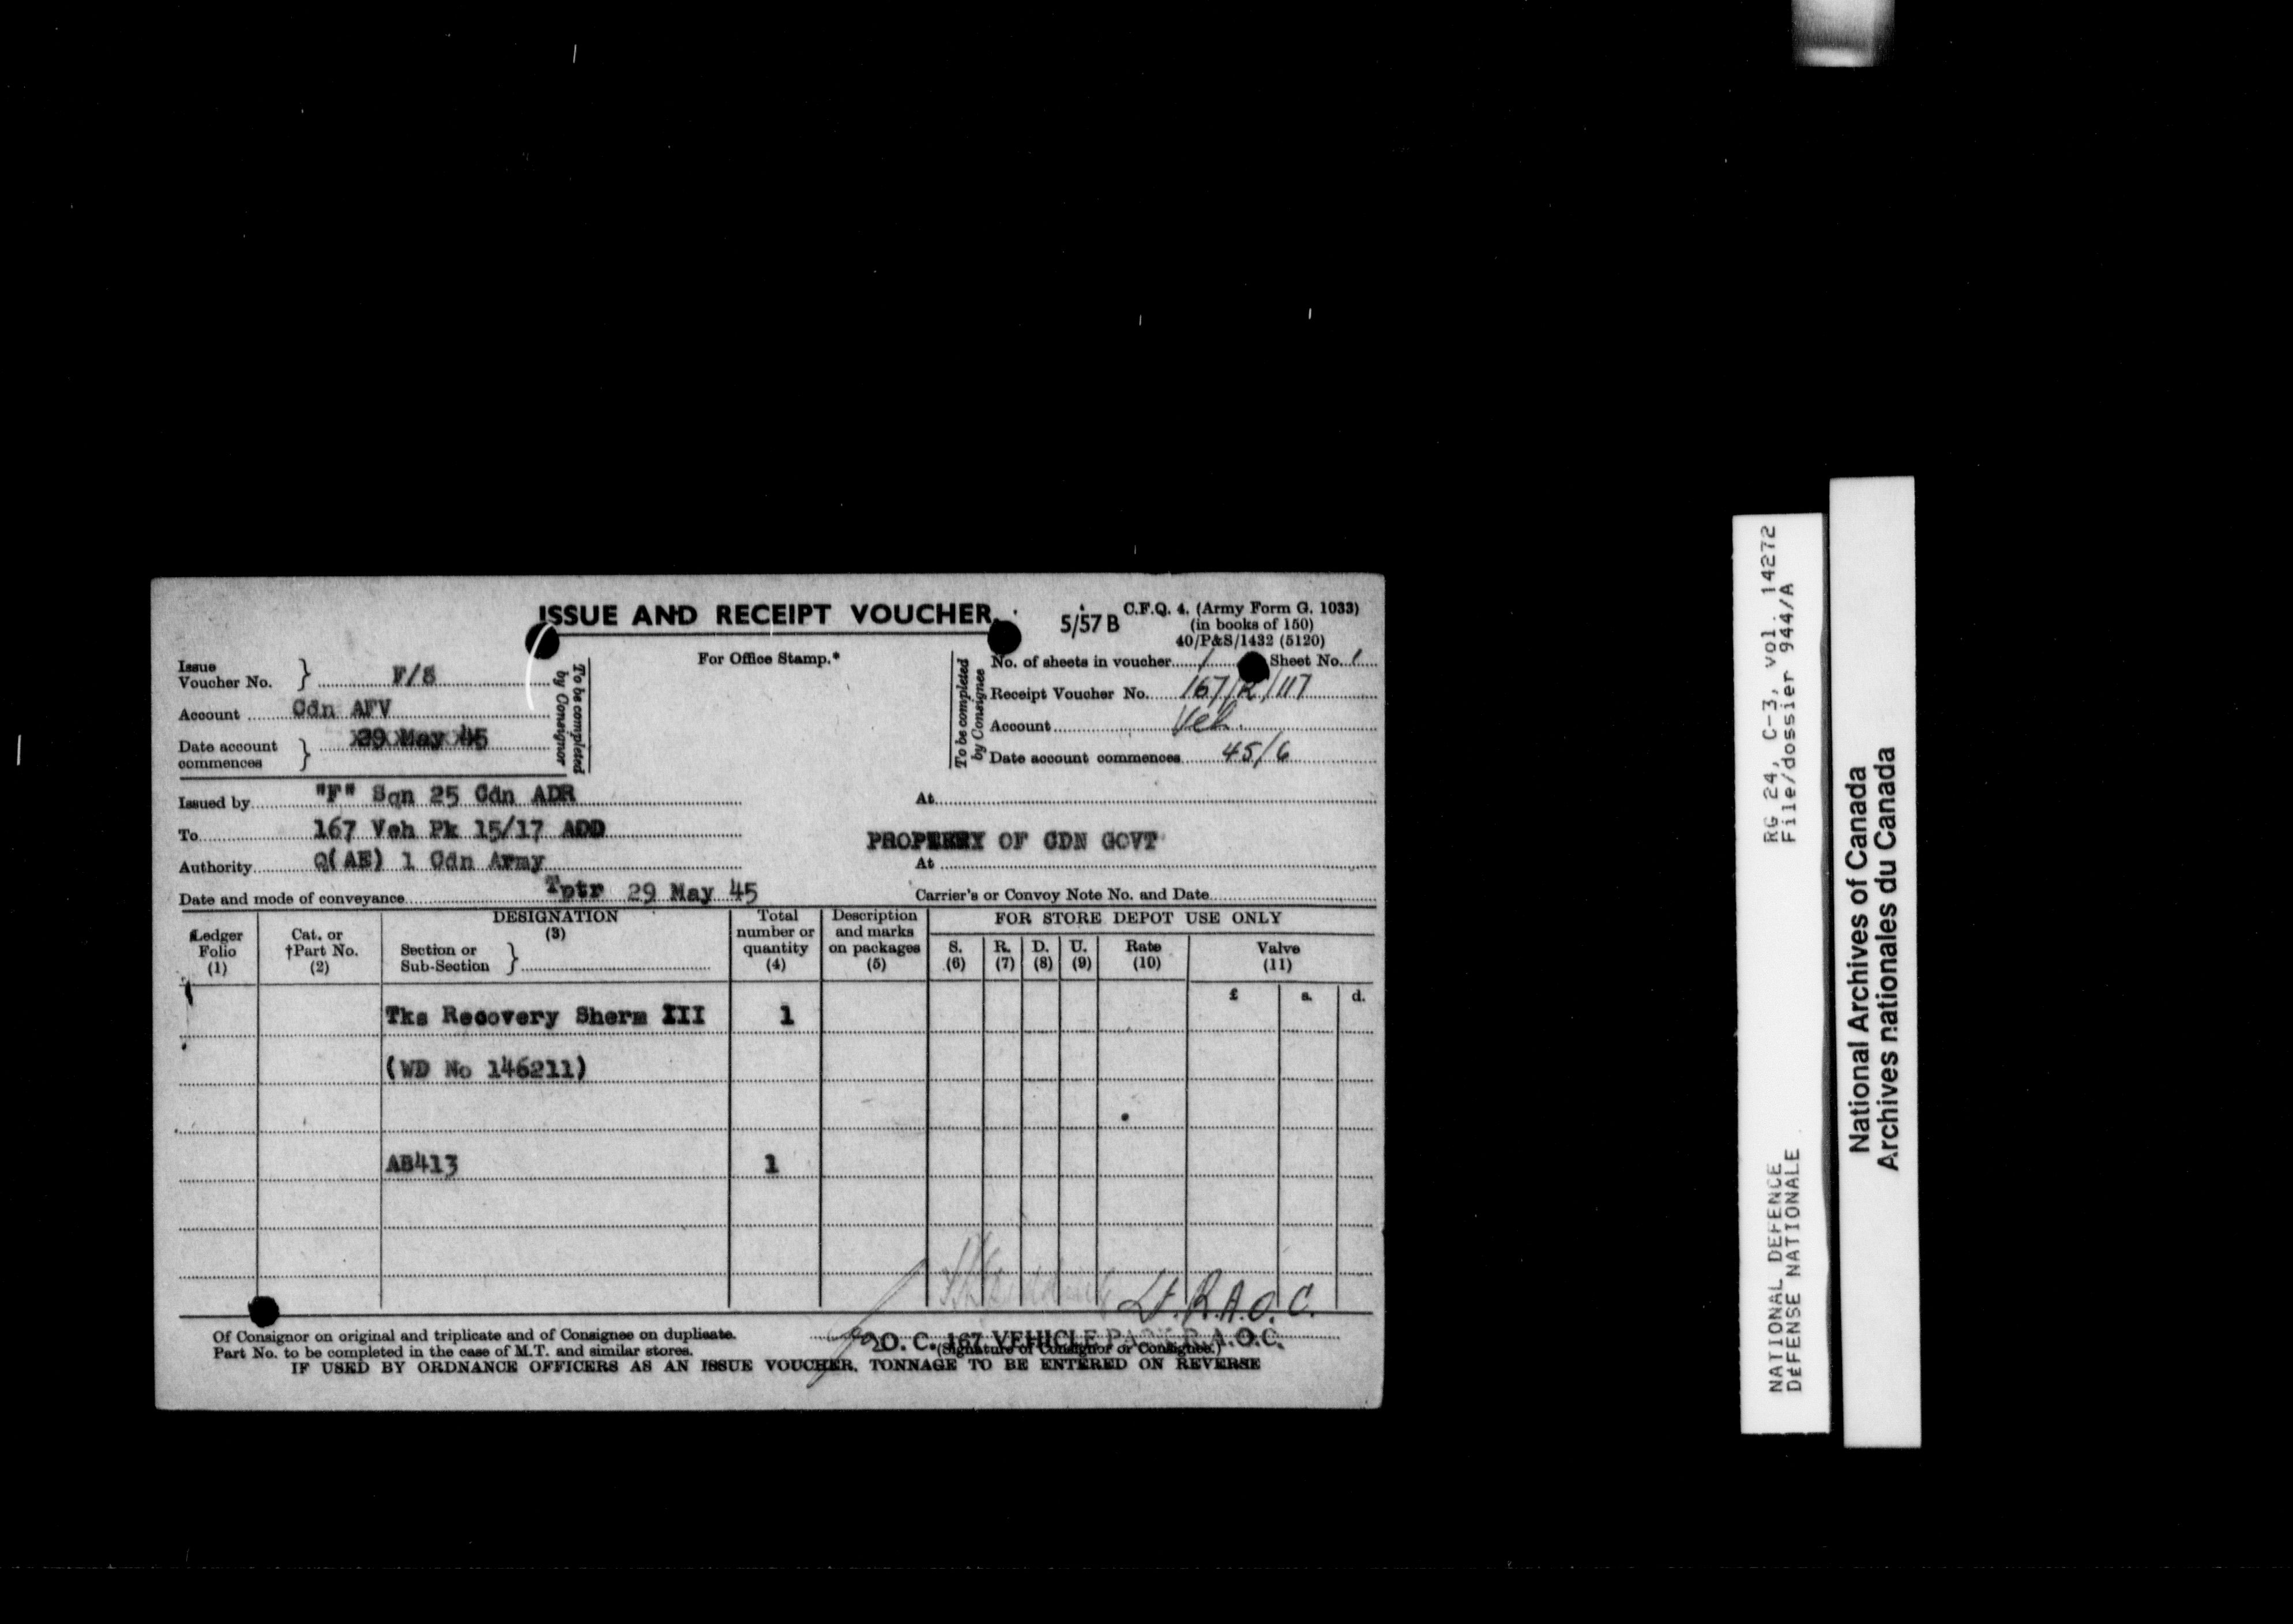 ISSUE AND RECEIPT VOUCHER.
5/57 B
C.F.Q. 4. (Army Form G. 1033)
(in books of 150)
40/P&S/1432 (5120)
Issue
Voucher No. } F/S
Account Cdn AFV
Date account
commences } 29 May 45
To be completed
by Consignor
For Office Stamp.*
To be completed
by Consignee
No. of sheets in voucher 1 Sheet No. 1
Receipt Voucher No. 167/R/117
Account Veh.
Date account commences 45/6
Issued by "F" Sqn 25 Cdn ADR At
To 167 Veh Pk 15/17 AOD
PROPERTY OF CDN GOVT
Authority Q(AE) 1 Cdn Army At
Date and mode of conveyance Tptr 29 May 45 Carrier's or Convoy Note No. and Date
Ledger
Folio
(1)
Cat. or
†Part No.
(2)
DESIGNATION
(3)
Section or
Sub-Section }
Total
number or
quantity
(4)
Description
and marks
on packages
(5)
FOR STORE DEPOT USE ONLY
S.
(6)
R.
(7)
D.
(8)
U.
(9)
Rate
(10)
Valve
(11)
£ s. d.
Tks Recovery Sherm III 1
(WD No 146211)
AB413 1
Lt. R.A.O.C.
O. C. 167 VEHICLE PARK R.A.O.C.
(Signature of Consignor or Consignee.)
Of Consignor on original and triplicate and of Consignee on duplicate.
Part No. to be completed in the case of M.T. and similar stores.
IF USED BY ORDNANCE OFFICERS AS AN ISSUE VOUCHER, TONNAGE TO BE ENTERED ON REVERSE
NATIONAL DEFENCE RG 24, C-3, vol. 14272
DÉFENSE NATIONALE File/dossier 944/A
National Archives of Canada
Archives nationales du Canada